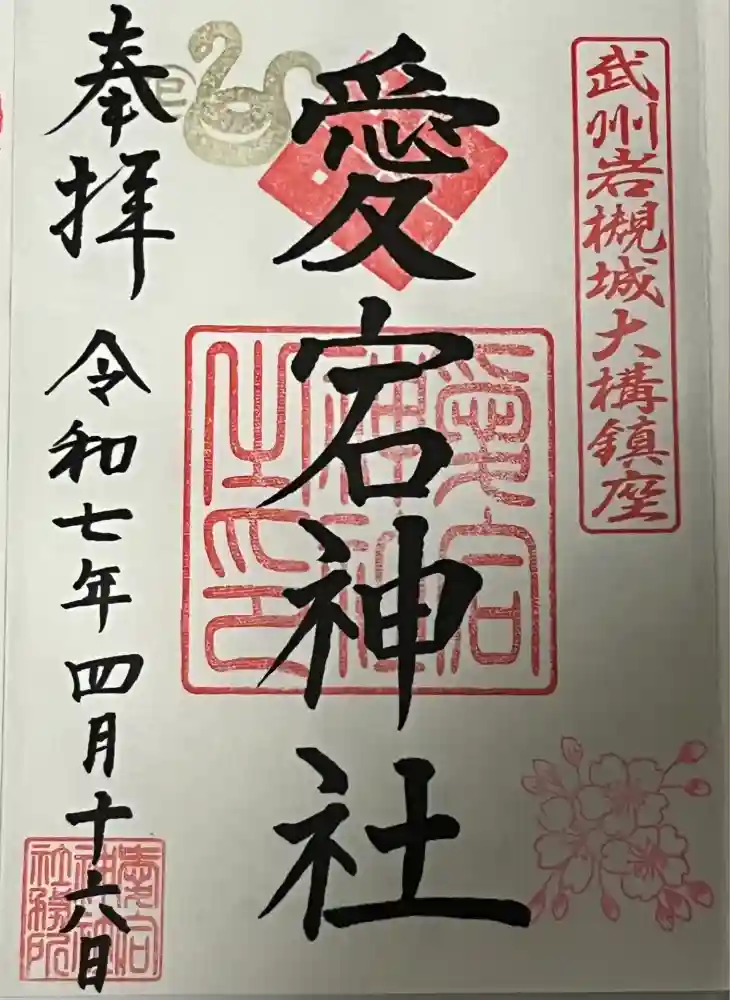 武州岩槻城大構鎮座
愛宕神社
愛宕
神社
之印
奉拝
巳
令和七年四月十六日
愛宕
神社
社務所